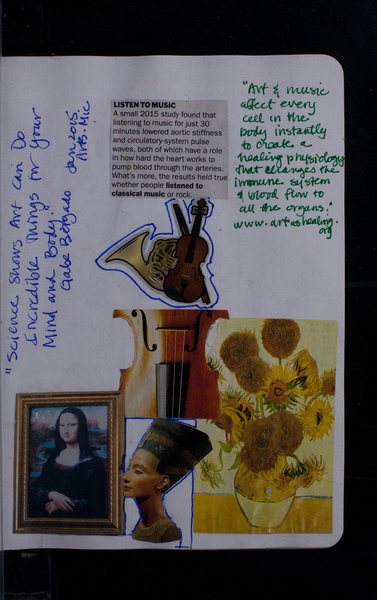 "Science Shows Art Can Do
Incredible Things for Your
Mind and Body."
Gabe Bergado Jan 2015
Arts.Mic
LISTEN TO MUSIC
A small 2015 study found that
listening to music for just 30
minutes lowered aortic stiffness
and circulatory-system pulse
waves, both of which have a role
in how hard the heart works to
pump blood through the arteries.
What's more, the results held true
whether people listened to
classical music or rock.
"Art & music
affect every
cell in the
body instantly
to create a
healing physiology
that changes the
immune system
& blood flow to
all the organs."
www.artashealing.
org